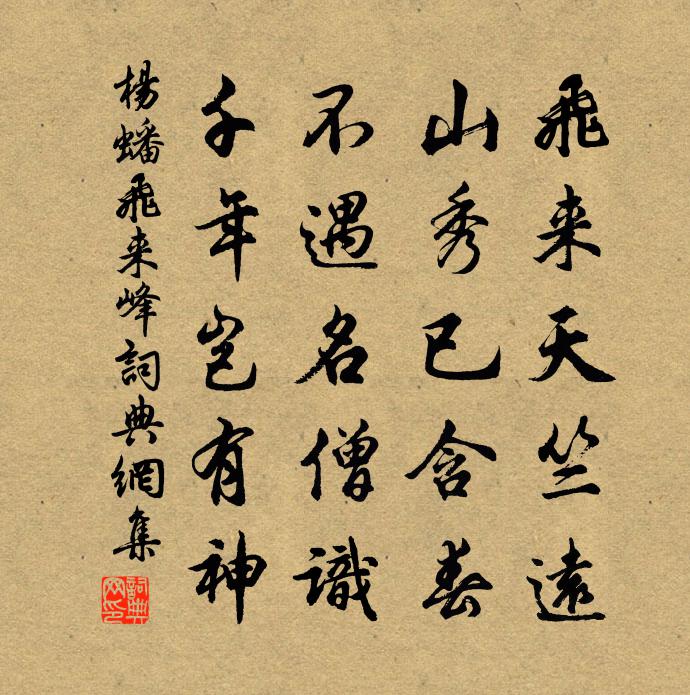 飛来天竺遠
山秀已含春
不遇名僧識
千年岂有神
楊蟠飛来峰詞典網集
詞典
网印